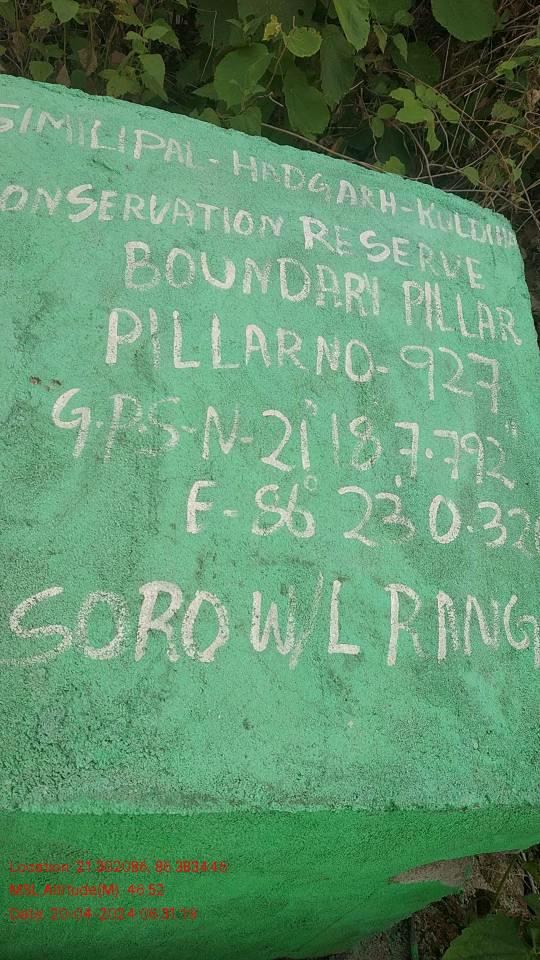 SIMILIPAL-HADGARH-KULDIHA
ONSERVATION RESERVE
BOUNDARY PILLAR
PILLAR NO-927
G.P.S-N-21° 18' 7.792"
E-86° 23' 0.320
SORO W/L RANG
Location: 21.302086, 86.383448
MSL Altitude(M): 46.52
Date: 20-04-2024 06:31: